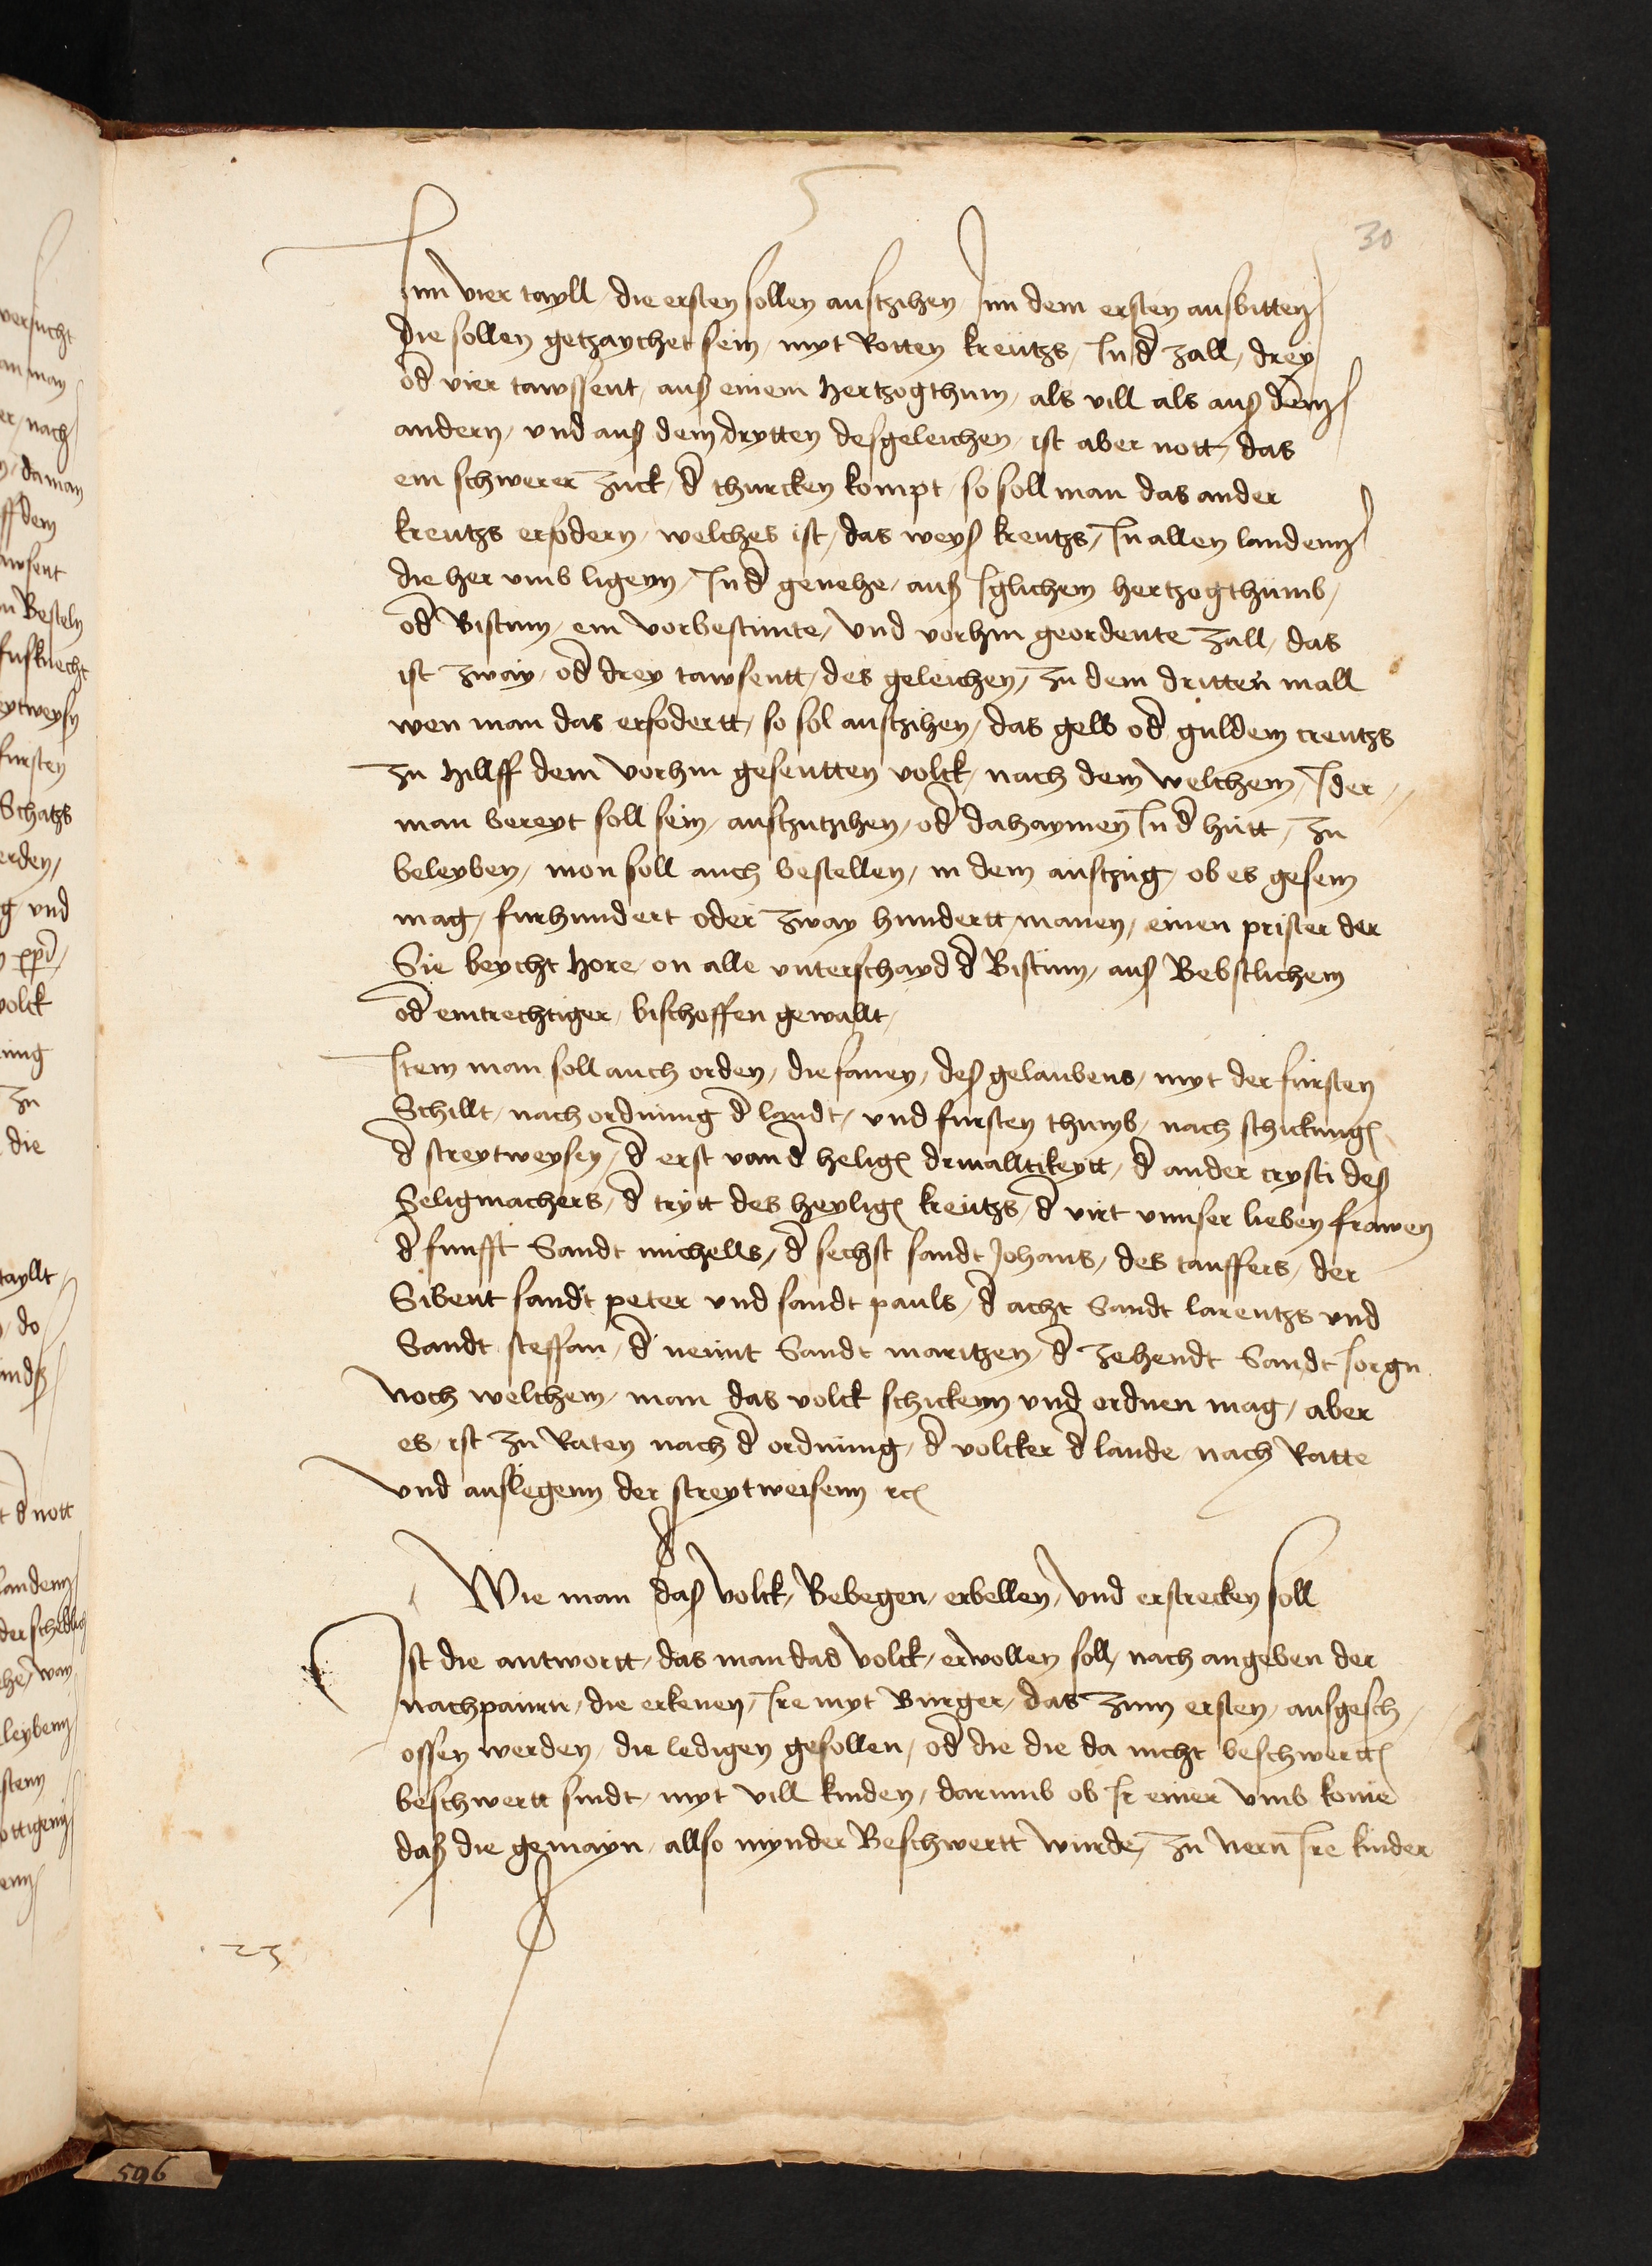 30
Inn vier tayll / die ersten sollen austzihen Inn dem ersten ausbitten
die sollen getzaychet sein / myt Rotten kreutzs / In d̄ zall / drey
od̄ vier tawssent / auß einem hertzogthum / als vill als auß dem
andern / vnd auß dem drytten desgeleichen / ist aber nott / das
ein schwerer zuck / d̄ thurcken kompt / so soll man das ander
kreutzs erfodern / welches ist / das weyß kreutzs / In allen landenn
die her vmb ligenn / In d̄ genehe / auß Iglichem hertzogthumb /
od̄ Bistum / ein vorbestimte / vnd vorhin geordente zall / das
ist zway / od̄ drey tawsentt / des geleichen / zu dem dritten mall
wen man das erfodertt / so sol austzihen / das gelb od̄ guldem creutzs
zu hillff dem vorhin gesentten volck / nach dem welchem / Ider //
man bereyt soll sein / austzutzihen / od̄ dahaymen In d̄ hutt / zu
beleyben / mon soll auch bestellen / in dem austzug / ob es gesein
mag / fur hundert oder zway hundertt manen / einen prister der
Sie beycht hore / on alle vnterschayd d̄ Bistum / auß Bebstlichem
od̄ eintrechtiger / bischoffen gewallt /
Item man soll auch orden / die fanen / deß gelaubens / myt der fursten
Schillt / nach ordnung d̄ landt / vnd fursten thumb / nach schickung
d̄ streytweysen / d̄ erst van d̄ helig drivalltikeytt / d̄ ander crysti deß
Seligmachers / d̄ trytt des heylig kreutzs / d̄ virt vnnser lieben frawen
d̄ funfft Sandt michells / d̄ sechst sandt Johans / des tauffers / der
Sibent sandt peter vnd sandt pauls / d̄ acht Sandt larentzs vnd
Sandt steffan / d̄ neunt Sandt maritzen / d̄ zehendt Sandt Iorgn
Noch welchem / man das volck schickenn vnd ordnen mag / aber
es / ist zu Raten nach d̄ ordnung / d̄ volcker d̄ lande / nach Ratte
vnd auslegenn der streytweisenn rc
Wie man daß volck / Bebegen / erbellen / vnd erstrecken soll
Ist die antwortt / das man das volck / erwollen soll / nach angeben der
nachpaurn / die erkenen / Ire myt Burger / das zum ersten / ausgesch /
ossen werden / die ledigen gesollen / od̄ die die da nicht beschwertt
beschwertt sindt / myt vill kinden / darumb ob Ir einer vmb kome
daß die gemayn / allso mynder Beschwertt wurde / zu nern Ire kinder
23
596